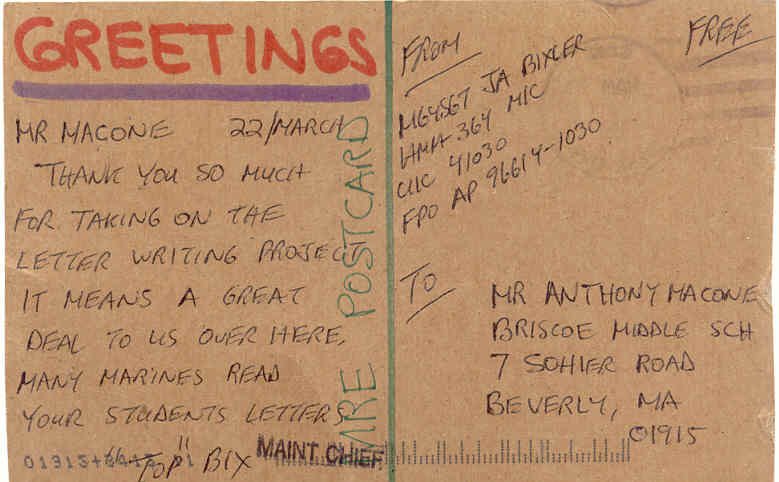 GREETINGS
MR MACONE 22/MARCH
THANK YOU SO MUCH
FOR TAKING ON THE
LETTER WRITING PROJECT
IT MEANS A GREAT
DEAL TO US OVER HERE,
MANY MARINES READ
YOUR STUDENTS LETTERS
"TOP" BIX
MAINT CHIEF
MRE POSTCARD
FROM
FREE
MGYSGT JA BIXLER
HMH-364 MIC
UIC 41030
FPO AP 96614-1030
TO
MR ANTHONY MACONE
BRISCOE MIDDLE SCH
7 SOHIER ROAD
BEVERLY, MA
01915